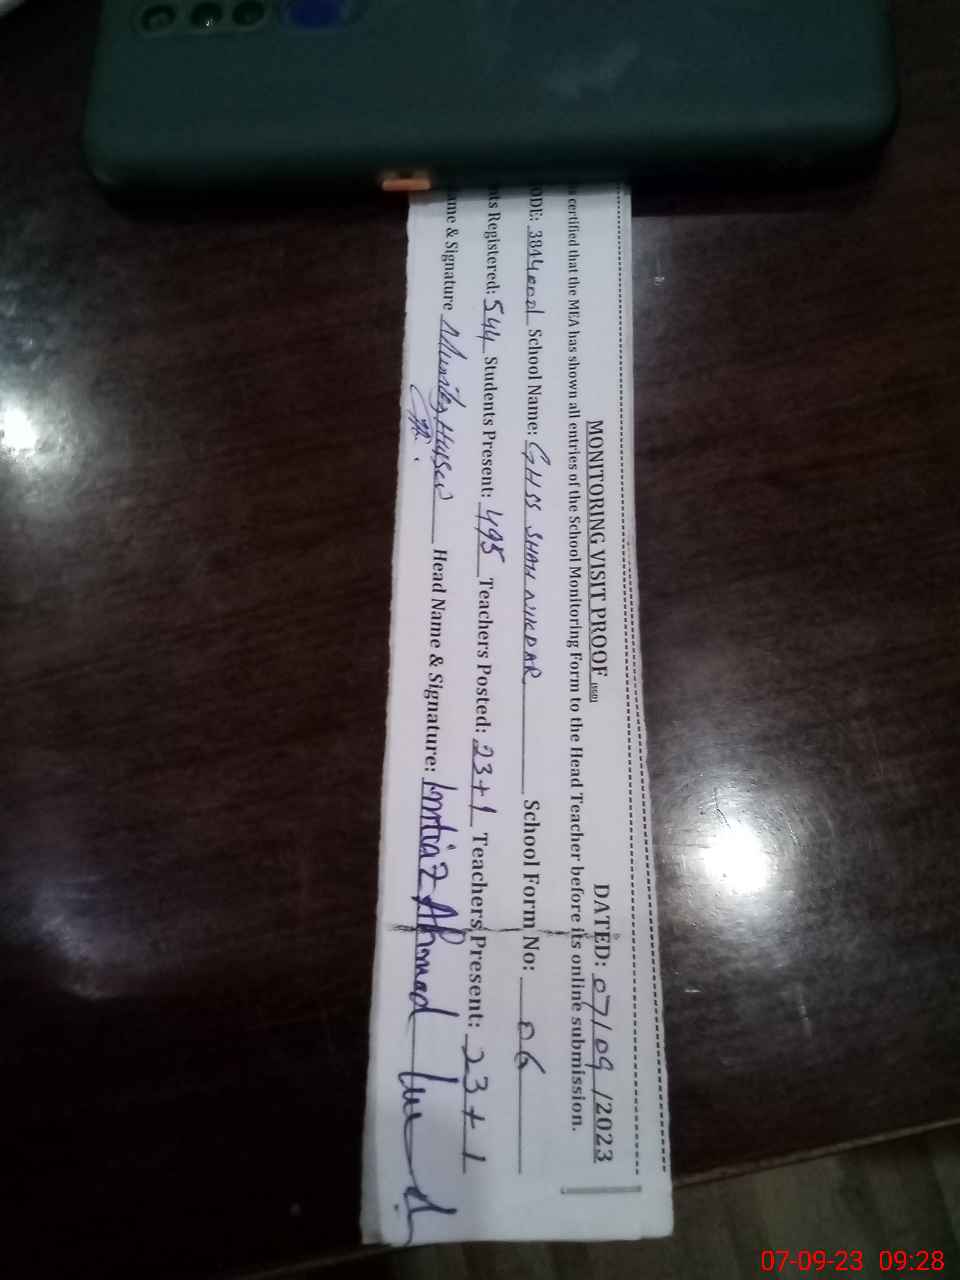 MONITORING VISIT PROOF
DATED: 07/09/2023
certified that the MEA has shown all entries of the School Monitoring Form to the Head Teacher before its online submission.
ODE: School Name: GHSS SHAH NIKDAR School Form No: 06
nts Registered: 544 Students Present: 495 Teachers Posted: 23+1 Teachers Present: 23+1
ame & Signature Head Name & Signature: Imtiaz Ahmad
07-09-23 09:28